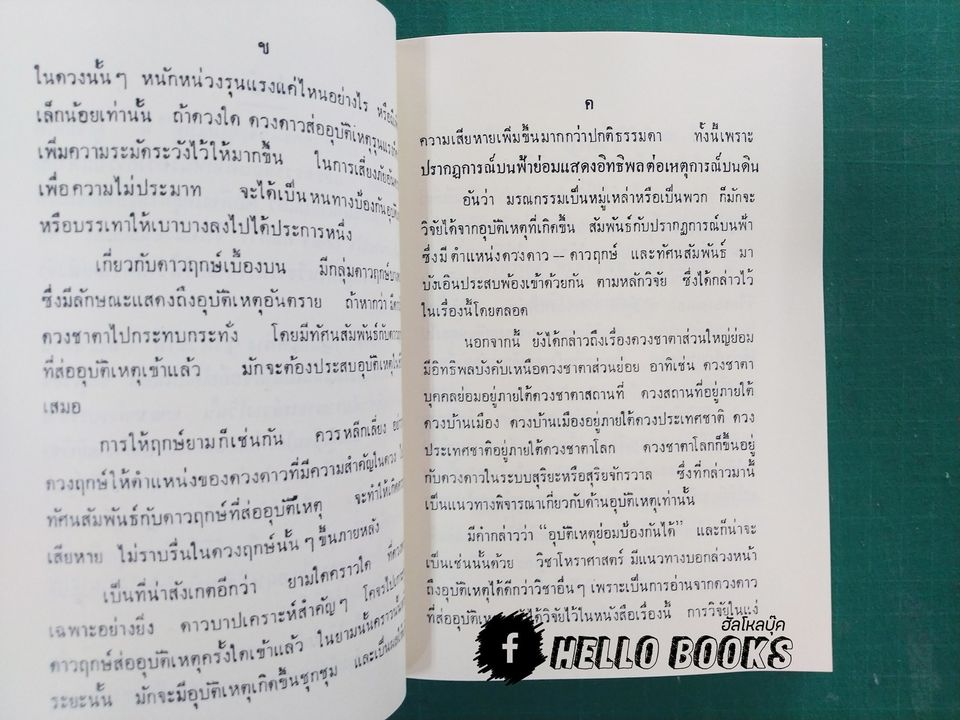 ข
ในดวงนั้นๆ หนักหน่วงรุนแรงแค่ไหนอย่างไร
เล็กน้อยเท่านั้น ถ้าดวงใด ดวงดาวส่ออุบัติเหตุรุนแรง
เพิ่มความระมัดระวังไว้ให้มากขึ้น ในการเสี่ยงภัย
เพื่อความไม่ประมาท จะได้เป็นหนทางป้องกัน
หรือบรรเทาให้เบาบางลงไปได้ประการหนึ่ง
เกี่ยวกับดาวฤกษ์เบื้องบน มีกลุ่มดาวฤกษ์
ซึ่งมีลักษณะแสดงถึงอุบัติเหตุอันตราย ถ้าหากว่า
ดวงชาตาไปกระทบกระทั่ง โดยมีทัศนสัมพันธ์กับ
ที่ส่ออุบัติเหตุเข้าแล้ว มักจะต้องประสบอุบัติเหตุ
เสมอ
การให้ฤกษ์ยามก็เช่นกัน ควรหลีกเลี่ยง
ดวงฤกษ์ให้ตำแหน่งของดวงดาวที่มีความสำคัญในดวง
ทัศนสัมพันธ์กับดาวฤกษ์ที่ส่ออุบัติเหตุ จะทำให้เกิด
เสียหาย ไม่ราบรื่นในดวงฤกษ์นั้นๆ ขึ้นภายหลัง
เป็นที่น่าสังเกตอีกว่า ยามใดคราวใด
เฉพาะอย่างยิ่ง ดาวบาปเคราะห์สำคัญๆ โคจรไป
ดาวฤกษ์ส่ออุบัติเหตุครั้งใดเข้าแล้ว ในยามนั้นคราวนั้น
ระยะนั้น มักจะมีอุบัติเหตุเกิดขึ้นชุกชุม และเป็น
ค
ความเสียหายเพิ่มขึ้นมากกว่าปกติธรรมดา ทั้งนี้เพราะ
ปรากฏการณ์บนฟ้าย่อมแสดงอิทธิพลต่อเหตุการณ์บนดิน
อันว่า มรณกรรมเป็นหมู่เหล่าหรือเป็นพวก ก็มักจะ
วิจัยได้จากอุบัติเหตุที่เกิดขึ้น สัมพันธ์กับปรากฏการณ์บนฟ้า
ซึ่งมีตำแหน่งดวงดาว — ดาวฤกษ์ และทัศนสัมพันธ์ มา
บังเอินประสบพ้องเข้าด้วยกัน ตามหลักวิจัย ซึ่งได้กล่าวไว้
ในเรื่องนี้โดยตลอด
นอกจากนี้ ยังได้กล่าวถึงเรื่องดวงชาตาส่วนใหญ่ย่อม
มีอิทธิพลบังคับเหนือดวงชาตาส่วนย่อย อาทิเช่น ดวงชาตา
บุคคลย่อมอยู่ภายใต้ดวงชาตาสถานที่ ดวงสถานที่อยู่ภายใต้
ดวงบ้านเมือง ดวงบ้านเมืองอยู่ภายใต้ดวงประเทศชาติ ดวง
ประเทศชาติอยู่ภายใต้ดวงชาตาโลก ดวงชาตาโลกก็ขึ้นอยู่
กับดวงดาวในระบบสุริยะหรือสุริยจักรวาล ซึ่งที่กล่าวมานี้
เป็นแนวทางพิจารณาเกี่ยวกับด้านอุบัติเหตุเท่านั้น
มีคำกล่าวว่า “อุบัติเหตุย่อมป้องกันได้” และก็น่าจะ
เป็นเช่นนั้นด้วย วิชาโหราศาสตร์ มีแนวทางบอกล่วงหน้า
ถึงอุบัติเหตุได้ดีกว่าวิชาอื่นๆ เพราะเป็นการอ่านจากดวงดาว
ที่ส่ออุบัติเหตุ ได้วิจัยไว้ในหนังสือเรื่องนี้ การวิจัยในแง่
ฮัลโหลบุ๊ค
f HELLO BOOKS